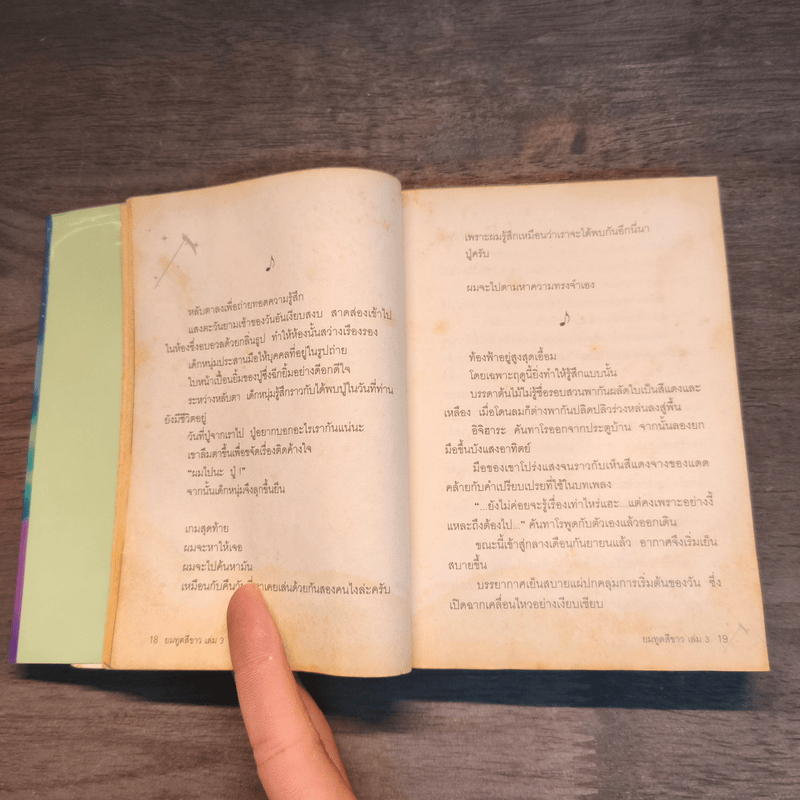 หลับตาลงเพื่อถ่ายทอดความรู้สึก
แสงตะวันยามเช้าของวันอันเงียบสงบ สาดส่องเข้าไป
ในห้องซึ่งอบอวลด้วยกลิ่นธูป ทำให้ห้องนั้นสว่างเรืองรอง
เด็กหนุ่มประสานมือให้บุคคลที่อยู่ในรูปถ่าย
ใบหน้าเปื้อนยิ้มของปู่ซึ่งฉีกยิ้มอย่างดีอกดีใจ
ระหว่างหลับตา เด็กหนุ่มรู้สึกราวกับได้พบปู่ในวันที่ท่าน
ยังมีชีวิตอยู่
วันที่ปู่จากเราไป ปู่อยากบอกอะไรเรากันแน่นะ
เขาลืมตาขึ้นเพื่อขจัดเรื่องติดค้างใจ
“ผมไปนะ ปู่!”
จากนั้นเด็กหนุ่มจึงลุกขึ้นยืน
เกมสุดท้าย
ผมจะหาให้เจอ
ผมจะไปค้นหามัน
เหมือนกับคืนวันที่เราเคยเล่นด้วยกันสองคนไงล่ะครับ
18 ยมทูตสีขาว เล่ม 3
เพราะผมรู้สึกเหมือนว่าเราจะได้พบกันอีกนี่นา
ปู่ครับ
ผมจะไปตามหาความทรงจำเอง
ท้องฟ้าอยู่สูงสุดเอื้อม
โดยเฉพาะฤดูนี้ยิ่งทำให้รู้สึกแบบนั้น
บรรดาต้นไม้ไม่รู้ชื่อรอบสวนพากันผลัดใบเป็นสีแดงและ
เหลือง เมื่อโดนลมก็ต่างพากันปลิดปลิวร่วงหล่นลงสู่พื้น
อิจิฮาระ คันทาโรออกจากประตูบ้าน จากนั้นลองยก
มือขึ้นบังแสงอาทิตย์
มือของเขาโปร่งแสงจนราวกับเห็นสีแดงจางของแดด
คล้ายกับคำเปรียบเปรยที่ใช้ในบทเพลง
“...ยังไม่ค่อยจะรู้เรื่องเท่าไหร่แฮะ...แต่คงเพราะอย่างงี้
แหละถึงต้องไป...” คันทาโรพูดกับตัวเองแล้วออกเดิน
ขณะนี้เข้าสู่กลางเดือนกันยายนแล้ว อากาศจึงเริ่มเย็น
สบายขึ้น
บรรยากาศเย็นสบายแผ่ปกคลุมการเริ่มต้นของวัน ซึ่ง
เปิดฉากเคลื่อนไหวอย่างเงียบเชียบ
ยมทูตสีขาว เล่ม 3 19